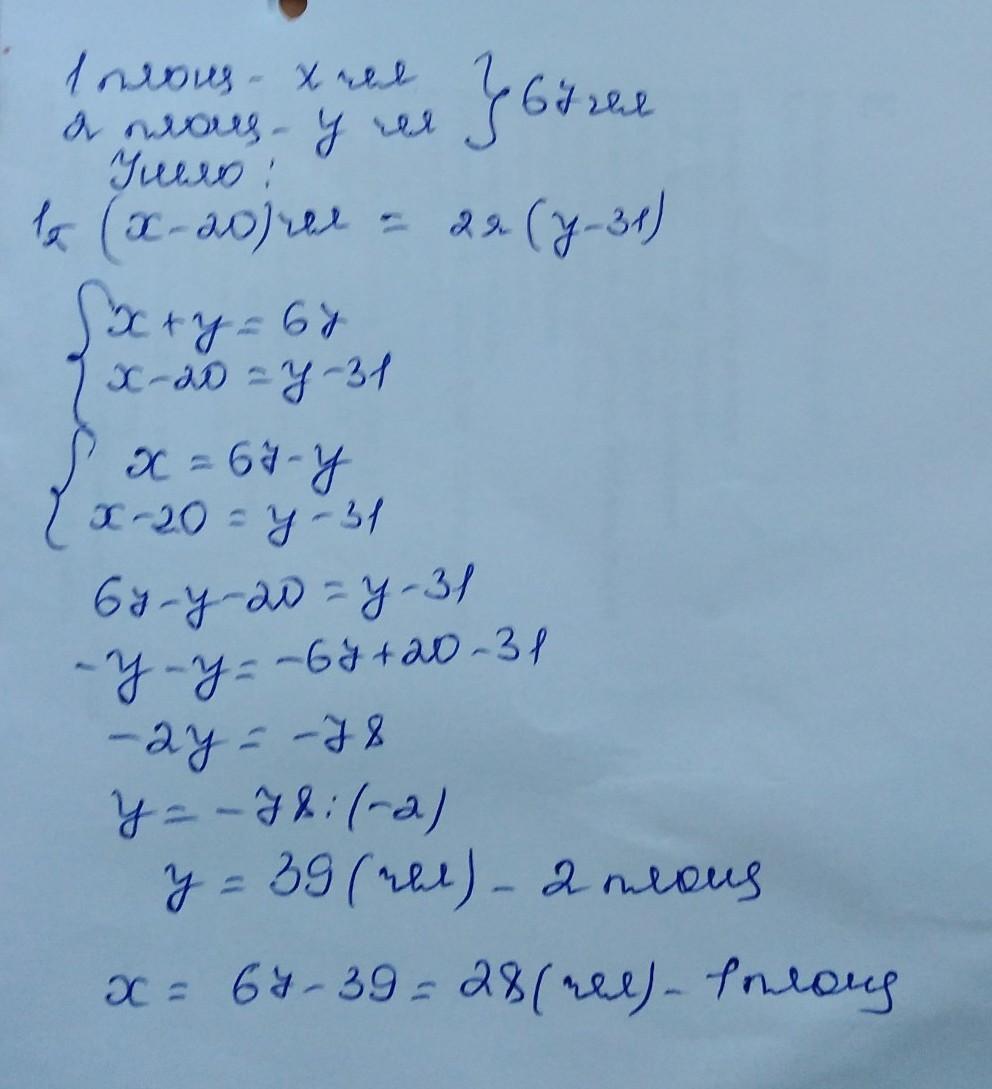 1 площ - x чел } 67 чел
2 площ - y чел
Ушло:
1п (x-20) чел = 2п (y-31)
{ x + y = 67
x - 20 = y - 31
{ x = 67 - y
x - 20 = y - 31
67 - y - 20 = y - 31
- y - y = - 67 + 20 - 31
- 2y = - 78
y = - 78 : (-2)
y = 39 (чел) - 2 площ
x = 67 - 39 = 28 (чел) - 1 площ